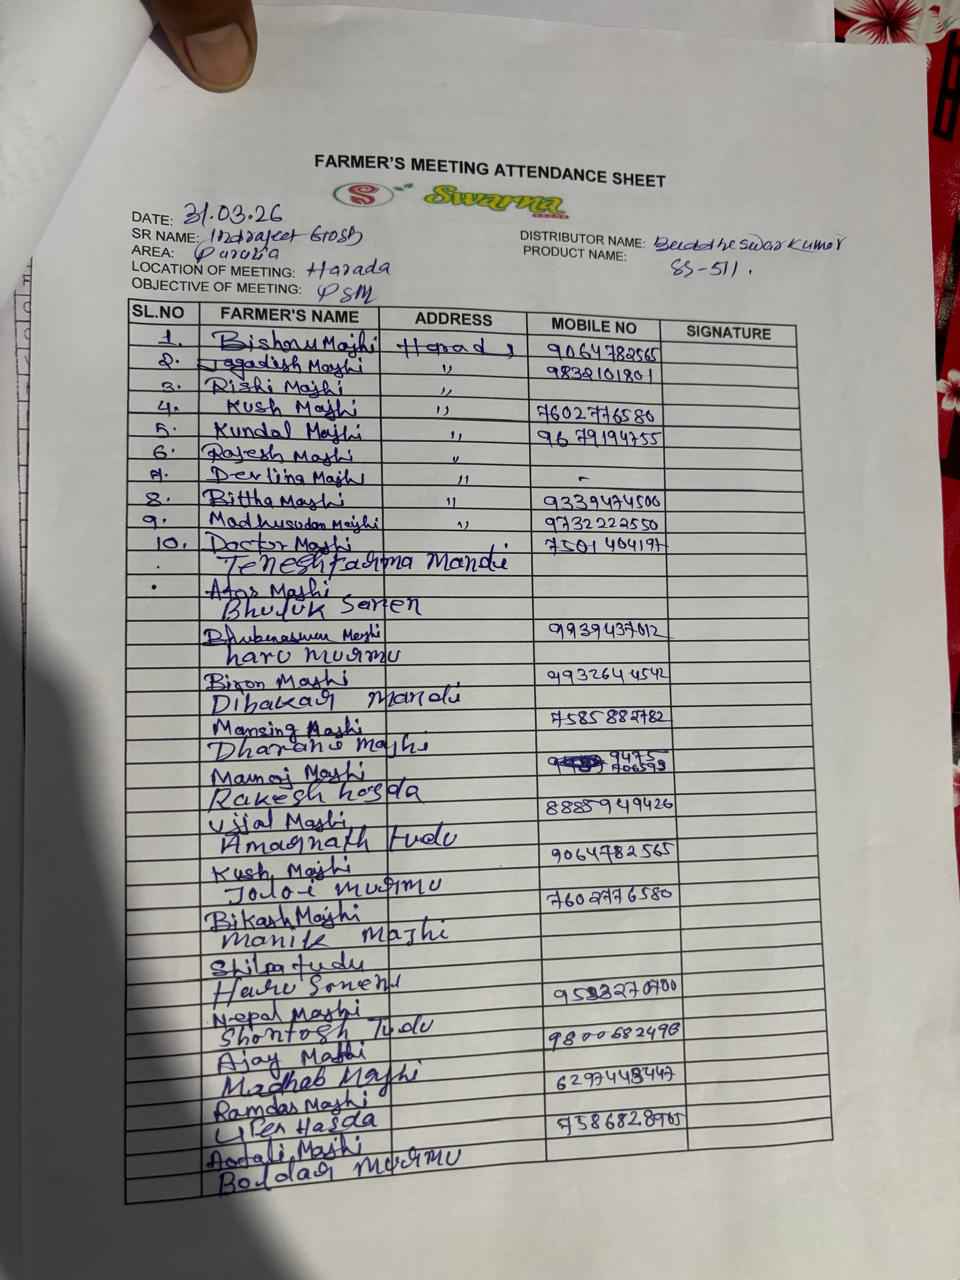 FARMER'S MEETING ATTENDANCE SHEET
S Swarna
DATE: 31.03.26
SR NAME: Indrajeet Gosh
DISTRIBUTOR NAME: Buddheswar Kumar
AREA: Purulia
PRODUCT NAME: SS-511.
LOCATION OF MEETING: Harada
OBJECTIVE OF MEETING: PSM
SL.NO FARMER'S NAME ADDRESS MOBILE NO SIGNATURE
1. Bishnu Majhi Harad 9064782565
2. Jagadish Majhi " 9832101801
3. Rishi Majhi "
4. Kush Majhi " 7602776580
5. Kundal Majhi " 9679194755
6. Rajesh Majhi "
7. Derlina Majhi " -
8. Bittha Majhi " 9339474500
9. Madhusudan Majhi " 9732222550
10. Doctor Majhi 7501404197
Mandi
Majhi
Bhuluk Soren
Majhi 9939437012
haru murmu
Biron Majhi 9932644542
Dibakar mandi
Mansing Majhi 7585882782
Dharani majhi
Manoj Majhi 9475 706573
Rakesh hasda
Ujjal Majhi 8885949426
Amarnath tudu
Kush Majhi 9064782565
murmu
Bikash Majhi 7602776580
Manik Majhi
Shilpa tudu
Haru Soren
Nepal Majhi
Shontosh Tudu
Ajay Majhi 9800682493
Madhab Majhi
Ramdas Majhi 6297448447
Hasda
Majhi
murmu